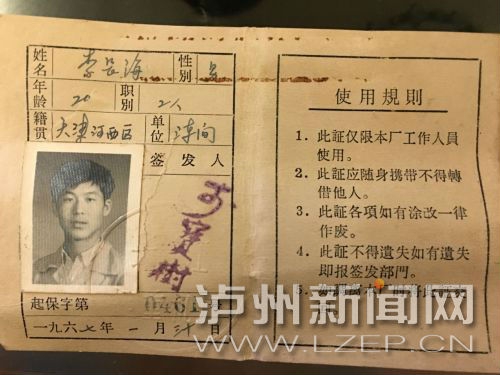 姓名 李長海 性別 男
年龄 20 职別 工人
籍贯 天津河西区 单位 車间
签发人
李宝樹
起保字第 0461 号
一九六七年 一 月 三十日
使用規則
1. 此証仅限本厂工作人員
使用。
2. 此証应随身携带不得轉
借他人。
3. 此証各項如有涂改一律
作废。
4. 此証不得遗失如有遺失
即报签发部門。
5.
泸州新闻网
WWW.LZEP.CN